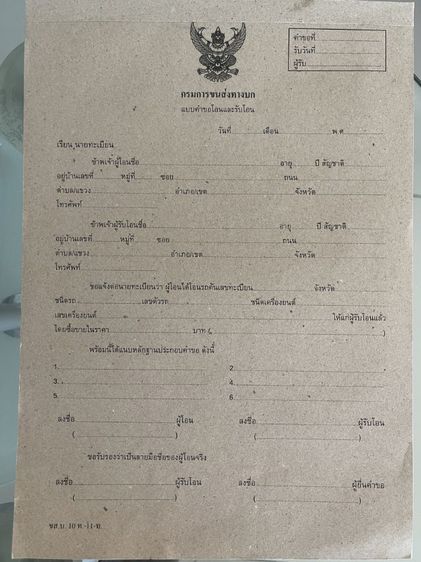 คำขอที่
รับวันที่
ผู้รับ
กรมการขนส่งทางบก
แบบคำขอโอนและรับโอน
วันที่ เดือน พ.ศ.
เรียน นายทะเบียน
ข้าพเจ้าผู้โอนชื่อ อายุ ปี สัญชาติ
อยู่บ้านเลขที่ หมู่ที่ ซอย ถนน
ตำบล/แขวง อำเภอ/เขต จังหวัด
โทรศัพท์
ข้าพเจ้าผู้รับโอนชื่อ อายุ ปี สัญชาติ
อยู่บ้านเลขที่ หมู่ที่ ซอย ถนน
ตำบล/แขวง อำเภอ/เขต จังหวัด
โทรศัพท์
ขอแจ้งต่อนายทะเบียนว่า ผู้โอนได้โอนรถคันเลขทะเบียน จังหวัด
ชนิดรถ เลขตัวรถ ชนิดเครื่องยนต์
เลขเครื่องยนต์ ให้แก่ผู้รับโอนแล้ว
โดยซื้อขายในราคา บาท ( )
พร้อมนี้ได้แนบหลักฐานประกอบคำขอ ดังนี้
1. 2.
3. 4.
5. 6.
ลงชื่อ ผู้โอน ลงชื่อ ผู้รับโอน
( ) ( )
ขอรับรองว่าเป็นลายมือชื่อของผู้โอนจริง
ลงชื่อ ผู้รับโอน ลงชื่อ ผู้ยื่นคำขอ
( ) ( )